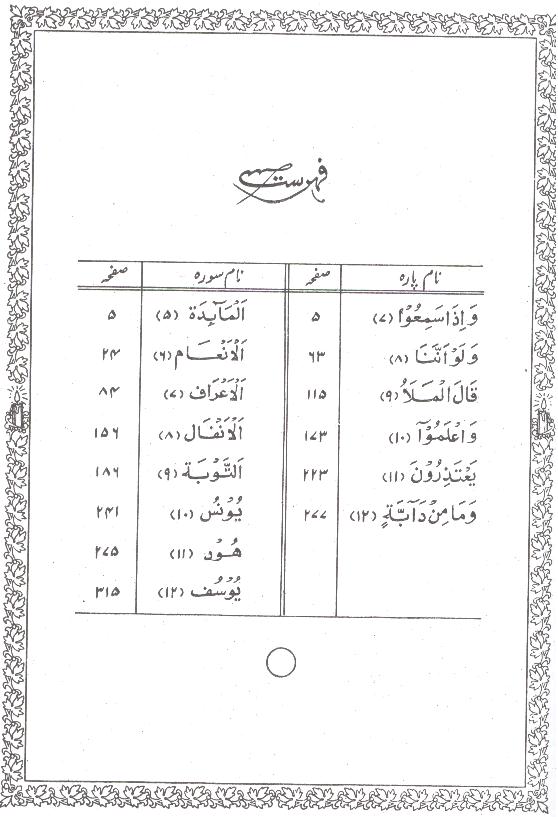 فہرست
نام پارہ صفحہ نام سورہ صفحہ
وَاِذَا سَمِعُوْا (۷) ۵ اَلْمَآئِدَة (۵) ۵
وَلَوْ اَنَّنَا (۸) ۶۳ اَلْاَنْعَـام (۶) ۲۴
قَالَ الْمَلَاُ (۹) ۱۱۵ اَلْاَعْرَاف (۷) ۸۴
وَاعْلَمُوْٓا (۱۰) ۱۷۳ اَلْاَنْفَال (۸) ۱۵۶
يَعْتَذِرُوْنَ (۱۱) ۲۲۳ اَلتَّوْبَة (۹) ۱۸۶
وَمَا مِنْ دَآبَّةٍ (۱۲) ۲۷۷ يُوْنُس (۱۰) ۲۴۱
هُـوْد (۱۱) ۲۷۵
يُوْسُف (۱۲) ۳۱۵